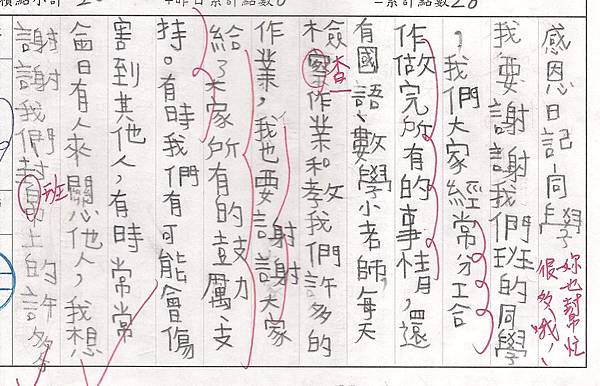 累計點數 20
+昨日累計點數
感恩日記-同學
妳也幫忙
很多哦!
我要謝謝我們班的同學
，我們大家經常分工合
作做完所有的事情，還
有國語、數學小老師，每天
檢察作業和教我們許多的
查
作業，我也要謝謝大家
給了大家所有的鼓勵、支
持。有時我們有可能會傷
害到其他人，有時常常
日有人來關心他人，我想
謝謝我們上的許多
班